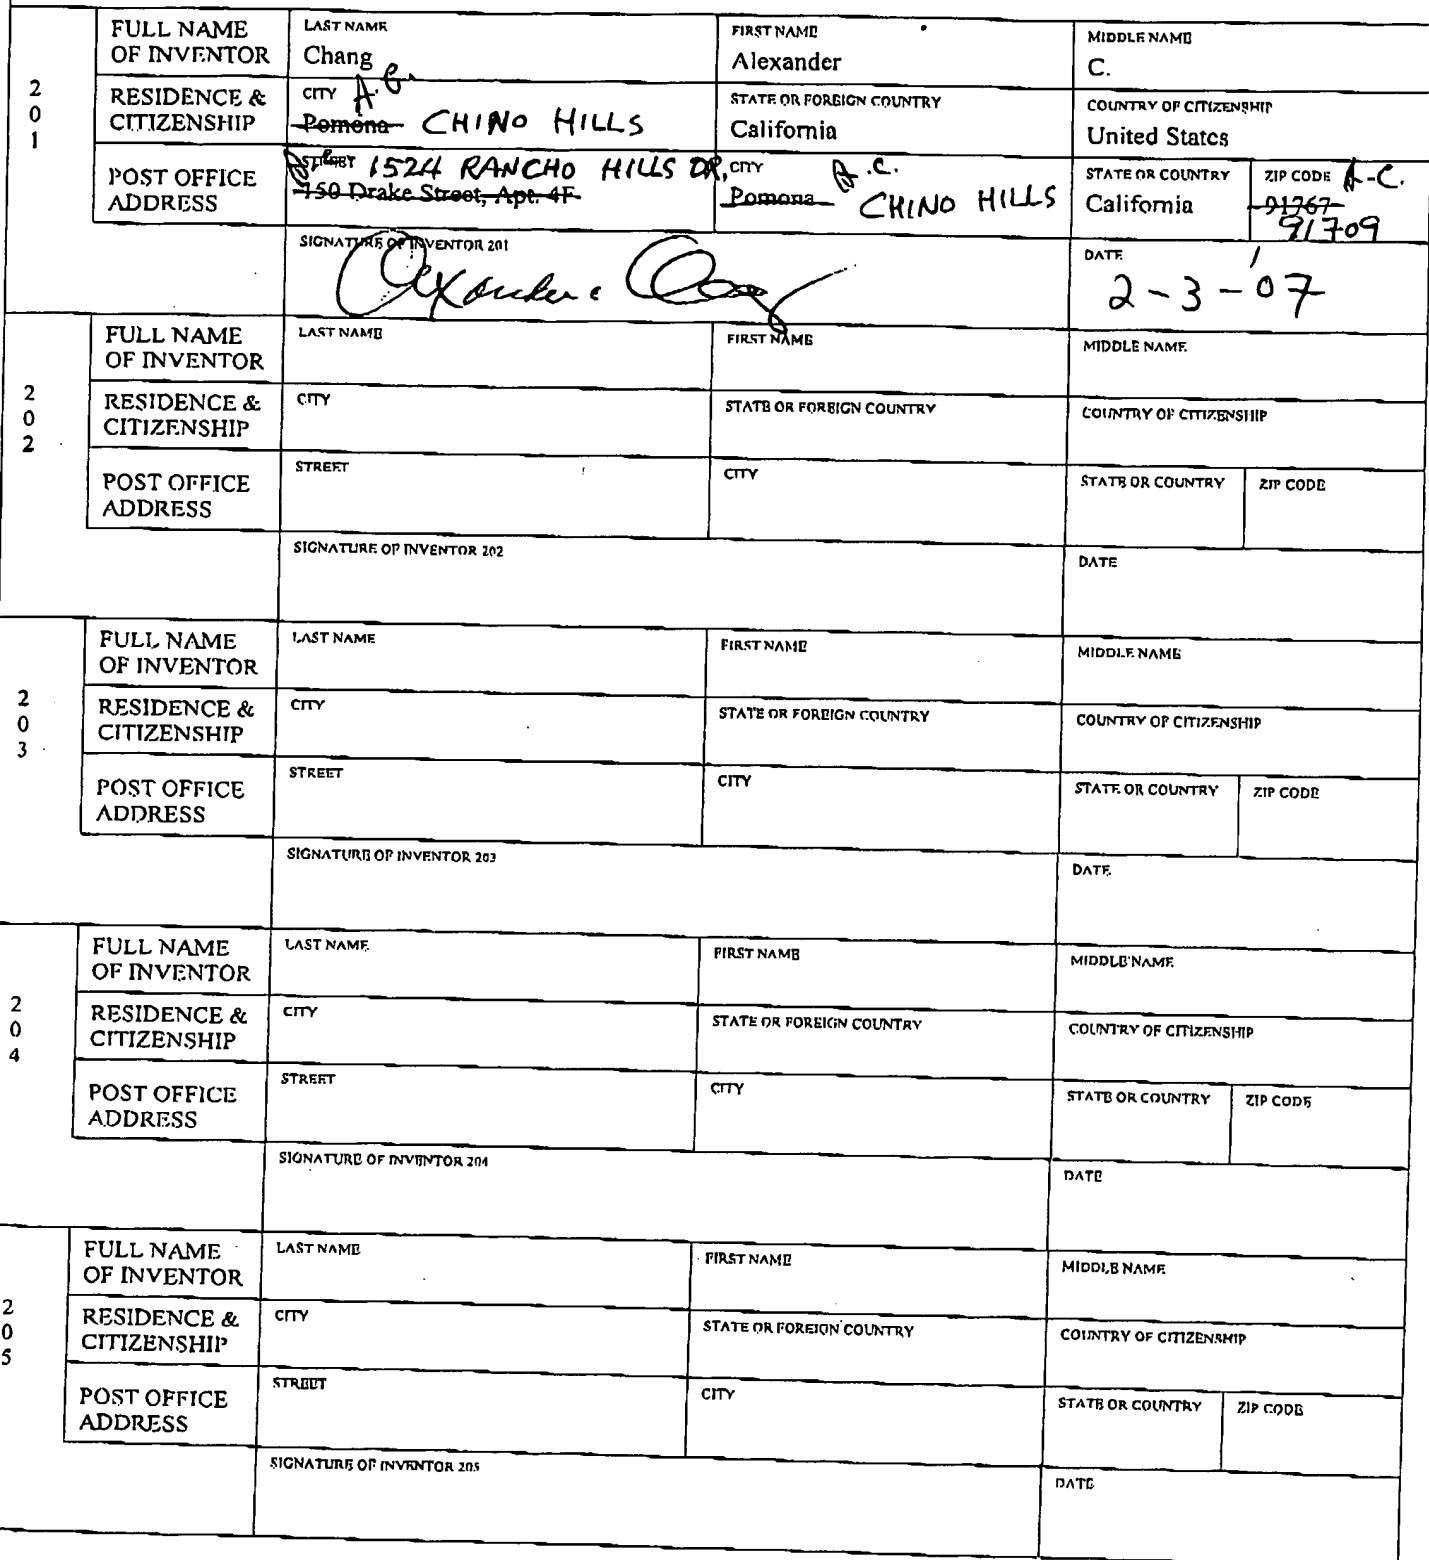 201
FULL NAME OF INVENTOR
LAST NAME
Chang
FIRST NAME
Alexander
MIDDLE NAME
C.
RESIDENCE & CITIZENSHIP
CITY A.C.
Pomona CHINO HILLS
STATE OR FOREIGN COUNTRY
California
COUNTRY OF CITIZENSHIP
United States
POST OFFICE ADDRESS
STREET 1524 RANCHO HILLS DR,
150 Drake Street, Apt. 4F
CITY A.C.
Pomona CHINO HILLS
STATE OR COUNTRY
California
ZIP CODE A-C.
91767
91709
SIGNATURE OF INVENTOR 201
Alexander C
DATE
2-3-07
202
FULL NAME OF INVENTOR
LAST NAME
FIRST NAME
MIDDLE NAME
RESIDENCE & CITIZENSHIP
CITY
STATE OR FOREIGN COUNTRY
COUNTRY OF CITIZENSHIP
POST OFFICE ADDRESS
STREET
CITY
STATE OR COUNTRY
ZIP CODE
SIGNATURE OF INVENTOR 202
DATE
203
FULL NAME OF INVENTOR
LAST NAME
FIRST NAME
MIDDLE NAME
RESIDENCE & CITIZENSHIP
CITY
STATE OR FOREIGN COUNTRY
COUNTRY OF CITIZENSHIP
POST OFFICE ADDRESS
STREET
CITY
STATE OR COUNTRY
ZIP CODE
SIGNATURE OF INVENTOR 203
DATE
204
FULL NAME OF INVENTOR
LAST NAME
FIRST NAME
MIDDLE NAME
RESIDENCE & CITIZENSHIP
CITY
STATE OR FOREIGN COUNTRY
COUNTRY OF CITIZENSHIP
POST OFFICE ADDRESS
STREET
CITY
STATE OR COUNTRY
ZIP CODE
SIGNATURE OF INVENTOR 204
DATE
205
FULL NAME OF INVENTOR
LAST NAME
FIRST NAME
MIDDLE NAME
RESIDENCE & CITIZENSHIP
CITY
STATE OR FOREIGN COUNTRY
COUNTRY OF CITIZENSHIP
POST OFFICE ADDRESS
STREET
CITY
STATE OR COUNTRY
ZIP CODE
SIGNATURE OF INVENTOR 205
DATE